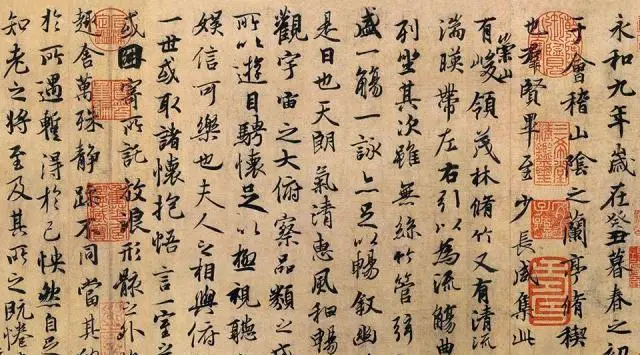 永和九年歲在癸丑暮春之初
于會稽山陰之蘭亭脩稧
也羣賢畢至少長咸集此
有崇山峻領茂林脩竹又有清流
湍暎帶左右引以為流觴曲
列坐其次雖無絲竹管弦
盛一觴一詠亦足以暢叙幽
是日也天朗氣清惠風和暢
觀宇宙之大俯察品類之
所以遊目騁懷足以極視聽
娛信可樂也夫人之相與俯
一世或取諸懷抱悟言一室之
或因寄所託放浪形骸之外
趣舍萬殊靜躁不同當其
於所遇蹔得於己怏然自
知老之將至及其所之既惓